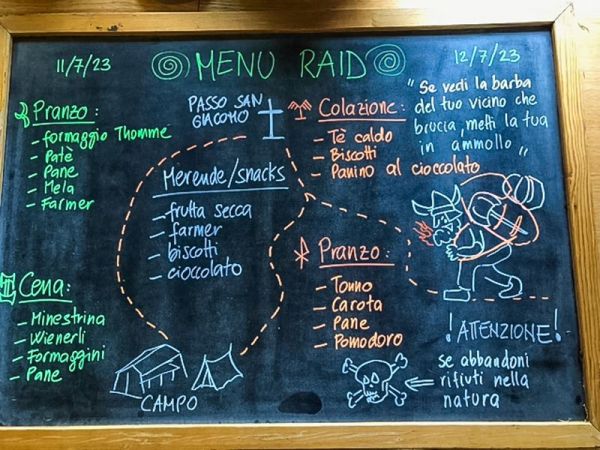 11/7/23
MENU RAID
12/7/23
Pranzo:
- formaggio Thomme
- Patè
- Pane
- Mela
- Farmer
Cena:
- Minestrina
- Wienerli
- Formaggini
- Pane
PASSO SAN
GIACOMO
Merende/snacks
- frutta secca
- farmer
- biscotti
- cioccolato
CAMPO
Colazione:
- Tè caldo
- Biscotti
- Panino al cioccolato
Pranzo:
- Tonno
- Carota
- Pane
- Pomodoro
"Se vedi la barba
del tuo vicino che
brucia, metti la tua
in ammollo"
!ATTENZIONE!
se abbandoni
rifiuti nella
natura